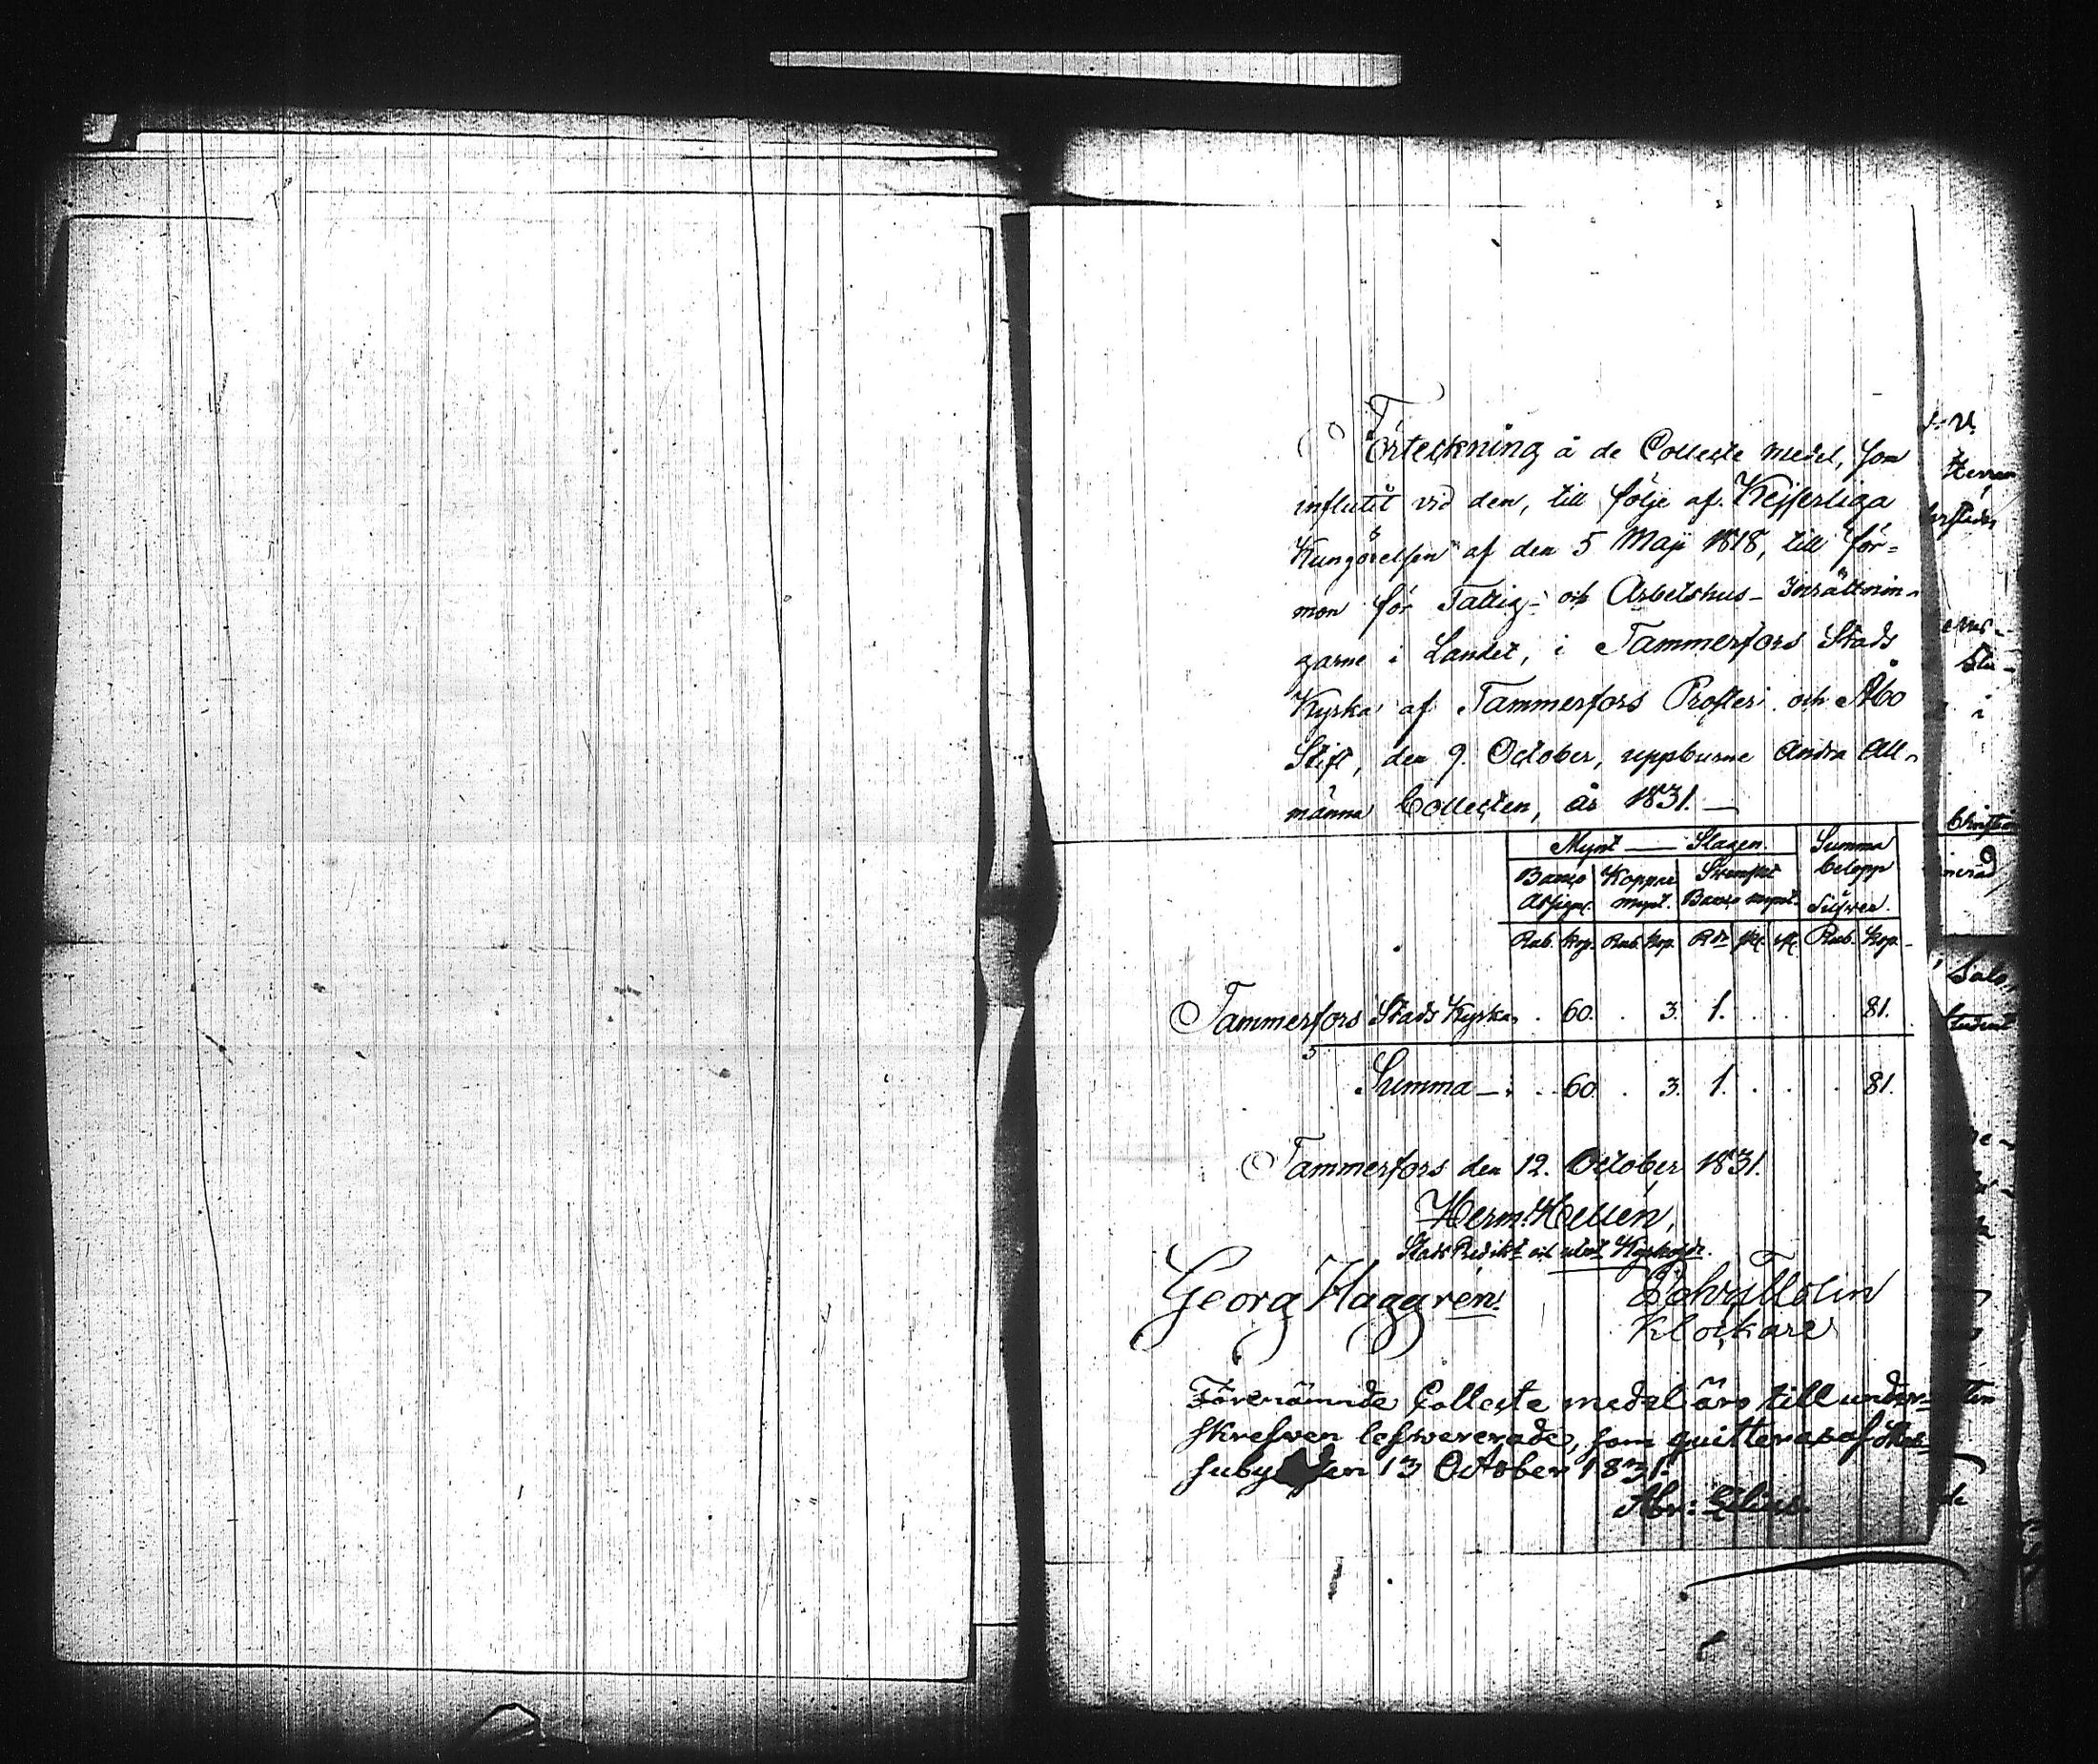 Förteckning å de Collecte medel, som
influtit vid den, till följe af Kejserliga
Kungörelsen af den 5 Maji 1818, till för=
mon för Fattig- och Arbetshus-Inrättnin-
garne i Landet, i Tammerfors Stads
Kyrka af Tammerfors Prosteri och Åbo
Stift, den 9. October, uppburne Andra All-
männa Collecten, år 1831. —
Mynt — Slagen. Summa
Banco Koppar Stämplat belopp
Assign. mynt. Banco mynt. Silfwer.
Rub. Kop. Rub. Kop. Rdr sk. rst. Rub. Kop.
Tammerfors Stads Kyrka . 60. . 3. 1. . . . 81.
Summa — . . 60. . 3. 1. . . . 81.
Tammerfors den 12. October 1831.
Herm: Hellén,
Stads Predikt och utnt Kyrkohde.
Georg Haggrén. Molin
Klockare
Förenämnde Collecte medel äro till under=
skrefwen lefwererade, som quitteras af
den 13 October 1831.
Abr: